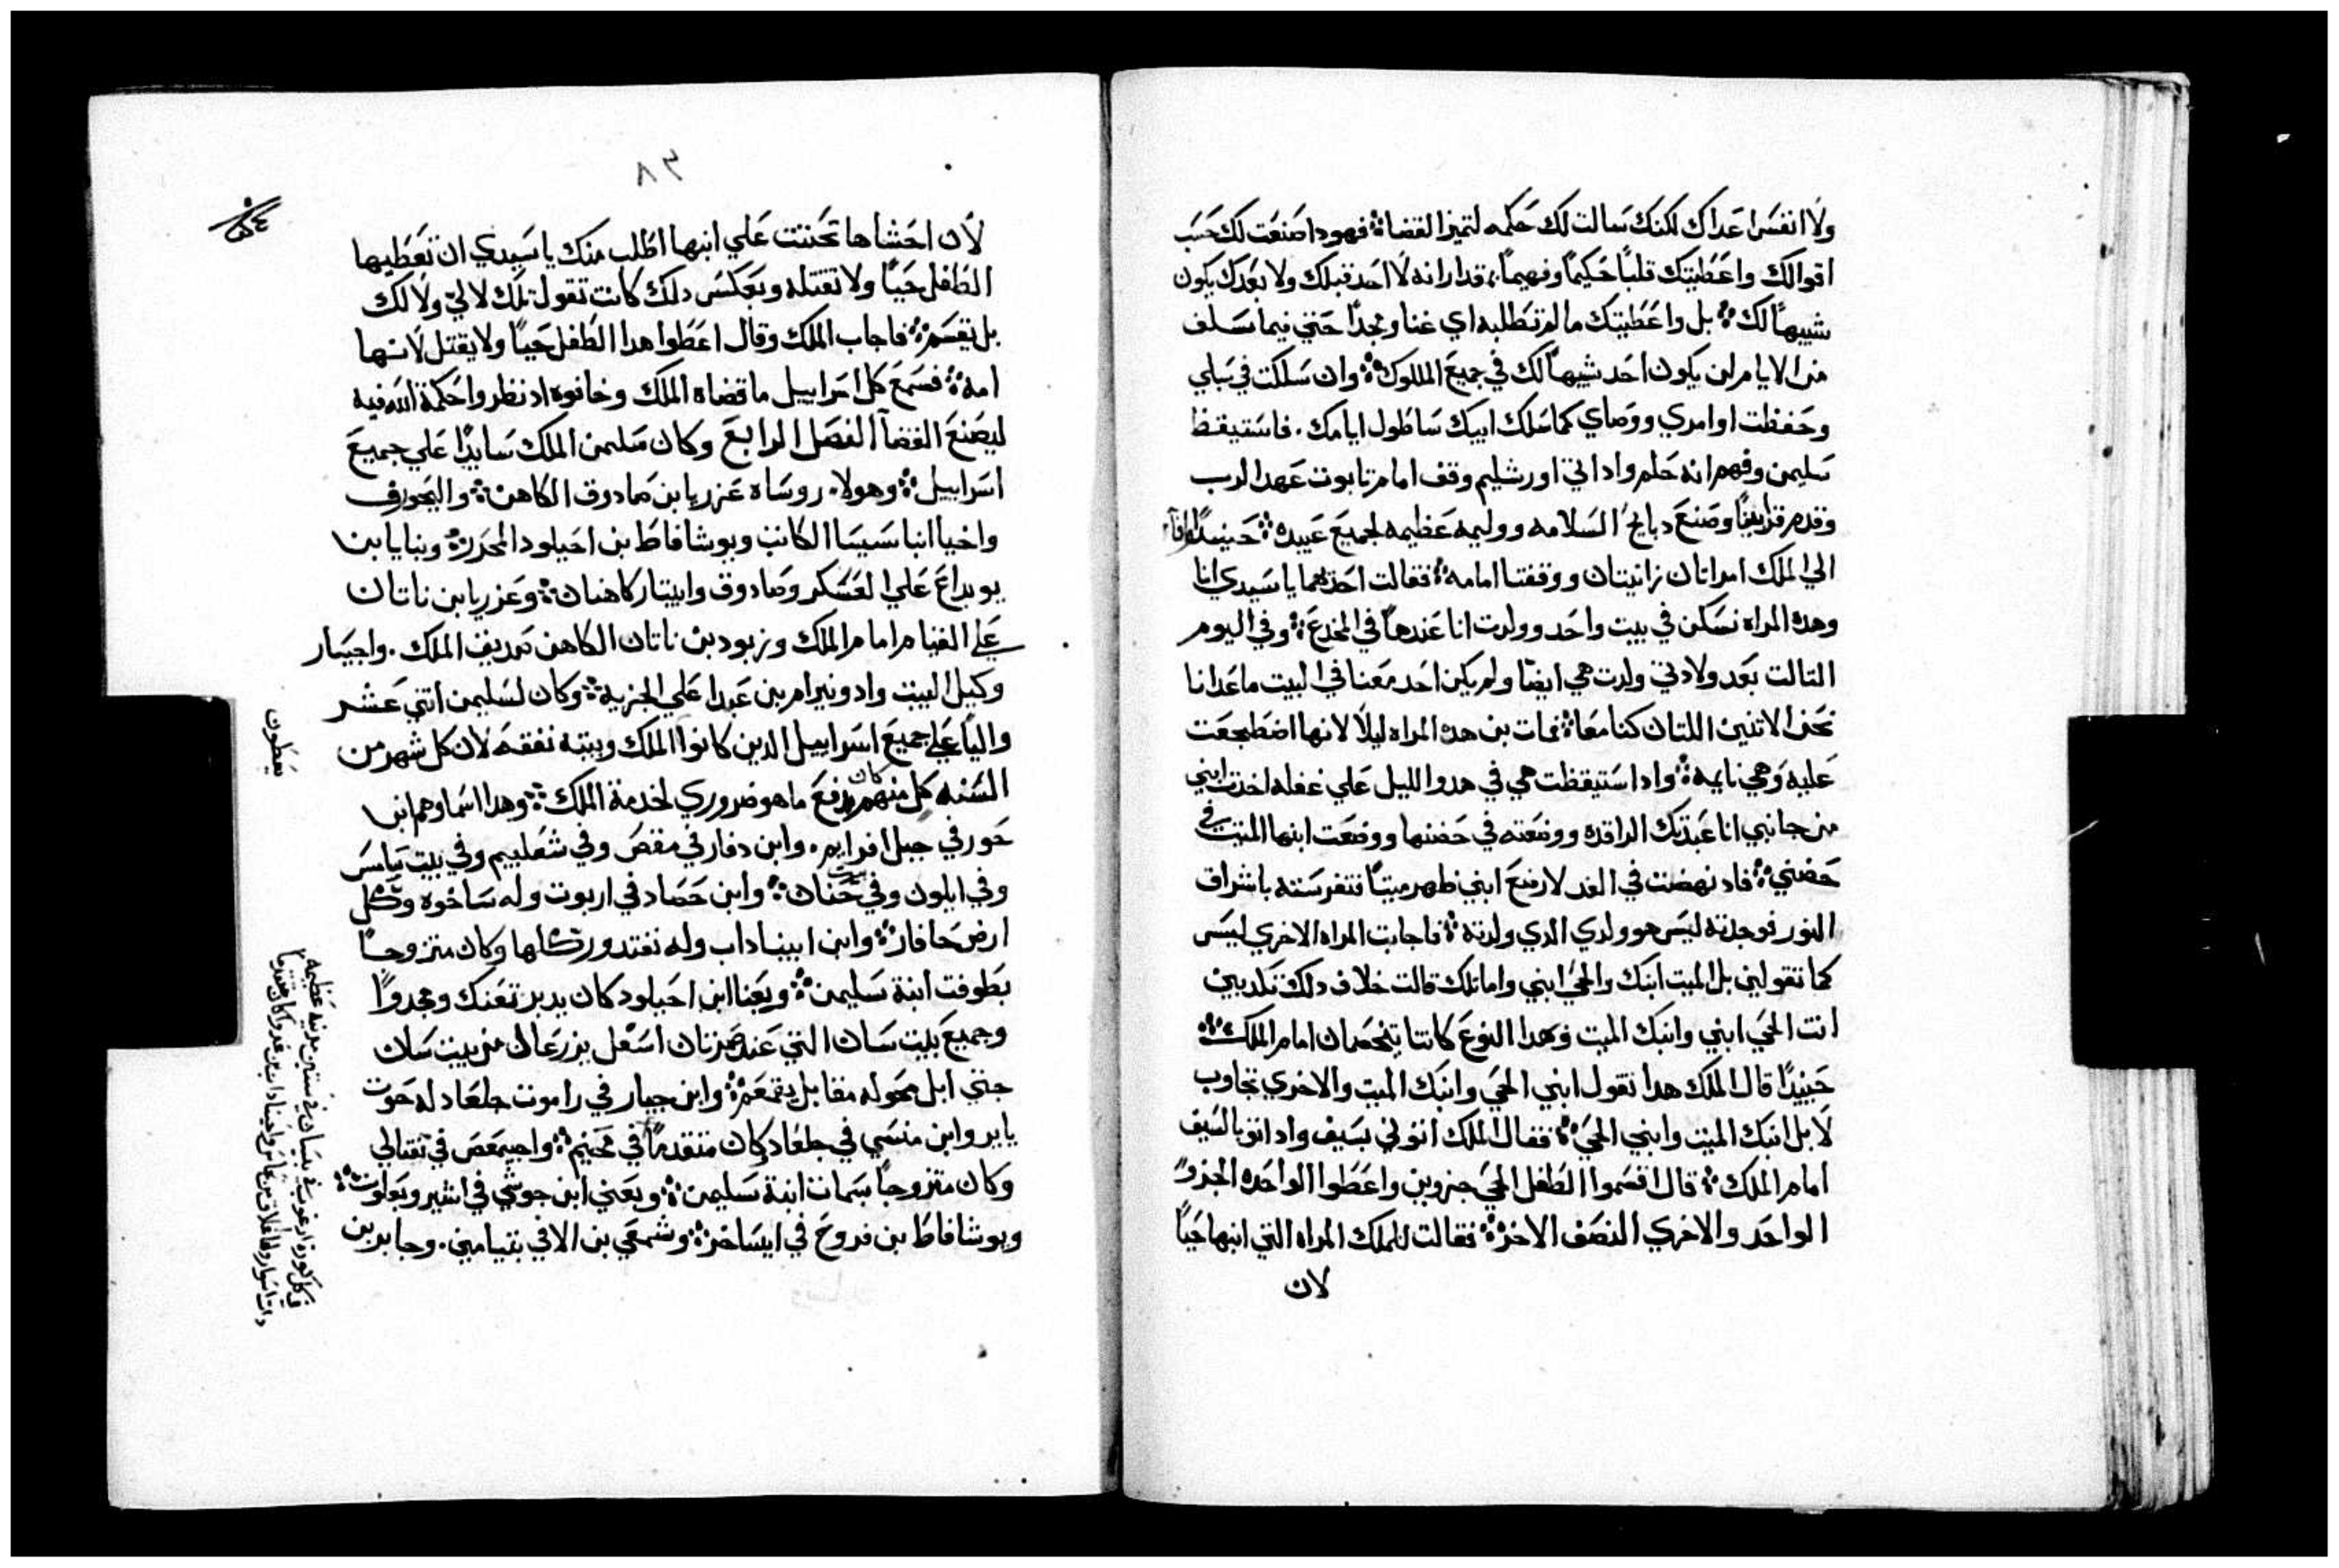 ولا انفس اعداك لكنك سالت لك حكمه لتميز القضاة فهودا صنعت لك حسب
اقوالك واعطيتك قلبًا حكيمًا وفهيمًا بمقدار انه لا احد قبلك ولا بعدك يكون
شبيهًا لك بل واعطيتك ما لم تطلبه اي غنا ومجدًا حتي فيما سلف
من الايام لن يكون احد شبيهًا لك في جميع الملوك وان سلكت في سبلي
وحفظت اوامري ووصاي كما سلك ابيك ساطول ايامك. فاستيقظ
سليمن وفهم انه حلم وادا اتي اورشليم وقف امام تابوت عهد الرب
وقدم قرابينًا وصنع دبايح السلامه ووليمه عظيمه لجميع عبيده حينيدًا
الي الملك امراتان زانيتان ووقفتا امامه فقالت احدهما يا سيدي انا
وهده المراه نسكن في بيت واحد وولدت انا عندها في المخدع وفي اليوم
التالت بعد ولادتي ولدت هي ايضًا ولم يكن احد معنا في البيت ما عدانا
نحن الاتنين اللتان كنا معًا فمات بن هده المراه ليلًا لانها اضطجعت
عليه وهي نايمه وادا ستيقظت هي في هدو الليل علي غفله اخدت ابني
من جانبي انا عبدتك الراقده ووضعته في حضنها ووضعت ابنها الميت في
حضني فاد نهضت في الغد لارضع ابني ظهر ميتًا فتفرسته باشراق
النور فوجدته ليس هو ولدي الدي ولدته فاجابت المراه الاخري ليس
كما تقولين بل الميت ابنك والحي ابني واما تلك قالت خلاف دلك تكدبين
انت الحي ابني وابنك الميت وبهدا النوع كانتا يتخصمان امام الملك
حينيدًا قال الملك هدا تقول ابني الحي وابنك الميت والاخري تجاوب
لا بل ابنك الميت وابني الحي فقال الملك اتوني بسيف واد اتو بالسيف
امام الملك قال اقسموا الطفل الحي جزوين واعطوا الواحده الجزو
الواحد والاخري النصف الاخر فقالت للملك المراه التي ابنها حيًا
لان
٨٣
لان احشاها تحننت علي ابنها اطلب منك يا سيدي ان تعطيها
الطفل حيًا ولا تقتله وبعكس دلك كانت تقول تلك لا لي ولا لك
بل يقسم فاجاب الملك وقال اعطوا هدا الطفل حيًا ولا يقتل لانها
امه فسمع كل اسراييل ما قضاه الملك وخافوه اد نظروا حكمة الله فيه
ليصنع القضآ الفصل الرابع وكان سليمن الملك سايدًا علي جميع
اسراييل وهولا. روساه عزريا بن صادوق الكاهن واليحورف
واخيا ابنا سيسا الكاتب ويوشافاط بن احيلود المحرر وبنايا بن
يويداع علي العسكر وصادوق وابيتار كاهنان وعزريا بن ناتان
علي القيام امام الملك وزبود بن ناتان الكاهن صديق الملك. واحيسار
وكيل البيت وادونيرام بن عبدا علي الجزيه وكان لسليمن اتني عشر
واليًا علي جميع اسراييل الدين كانوا الملك وبيته نفقه لان كل شهر من
يعطون
السنه كل منهم كان يدفع ما هو ضروري لخدمة الملك وهدا اسماوهم ابن
حور في جبل افرايم. وابن دفار في مقص وفي شعلبيم وفي بيت ياسس
وفي ايلون وفي بيت حنان وابن حصاد في اربوت وله ساخوه وكل
ارض حافار وابن ابيناداب وله نفتدور كلها وكان متزوجًا
بطوفت ابنة سليمن وبعنا ابن احيلود كان يدبر تعنك ومجدوا
وجميع بيت سان التي عند صرتان اسفل يزرعال من بيت سان
حتي ابل محوله مقابل يقمعم وابن جبار في راموت جلعاد له حوت
يابير وابن منسي في جلعاد وكان متقدمًا في محنيم واحيمعص في نفتالي
وكان متزوجًا بسمات ابنة سليمن وبعني ابن حوشي في اشير وبعلوت
ويوشافاط بن فروح في ايساخر وشمعي بن الا في بنيامين. وجابر بن